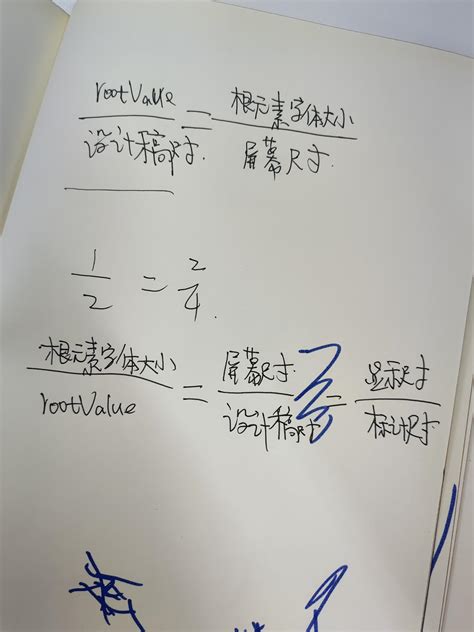 rootValue / 设计稿尺寸 = 根元素字体大小 / 屏幕尺寸
1/2 = 2/4
根元素字体大小 / rootValue = 屏幕尺寸 / 设计稿尺寸 = 显示尺寸 / 标注尺寸